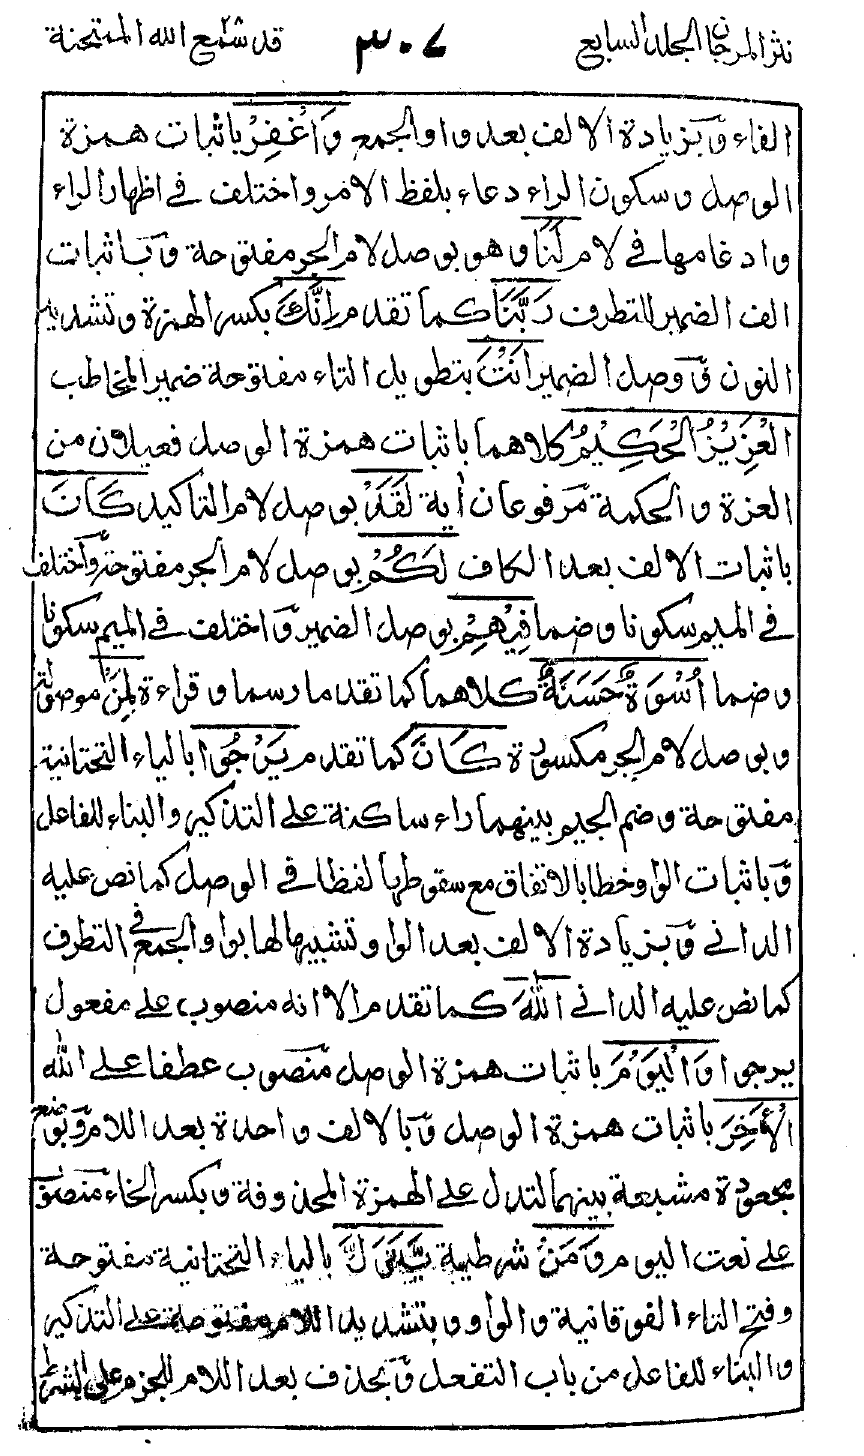 نثر المرجان الجلد السابع ٣٠٧ قد سمع الله ٢٨ الممتحنة
الفاء وَبزيادة الالف بعد واو الجمع وَاغْفِرْ باثبات همزة
الوصل وسكون الراء دعاء بلفظ الامر واختلف فى اظهار الراء
وادغامها فى لام لَنَا وهو بوصل لام الجر مفتوحة وَباثبات
الف الضمير للتطرف رَبَّنَا كما تقدم اِنَّكَ بكسر الهمزة وتشديد
النون وَوصل الضمير اَنْتَ بتطويل التاء مفتوحة ضمير المخاطب
الْعَزِيْزُ الْحَكِيْمُ كلاهما باثبات همزة الوصل فعيلان من
العزة والحكمة مرفوعان اٰية لَقَدْ بوصل لام التاكيد كَانَ
باثبات الالف بعد الكاف لَكُمْ بوصل لام الجر مفتوحة وَاختلف
فى الميم سكونا وضما فِيْهِمْ بوصل الضمير وَاختلف فى الميم سكونا
وضما اُسْوَةٌ حَسَنَةٌ كلاهما كما تقدما رسما وقراءة لِمَنْ موصولة
وبوصل لام الجر مكسورة كَانَ كما تقدم يَرْجُوا بالياء التحتانية
مفتوحة وضم الجيم بينهما راء ساكنة على التذكير والبناء للفاعل
وَباثبات الواو خطا بالاتفاق مع سقوطها لفظا فى الوصل كما نص عليه
الدانى وَبزيادة الالف بعد الواو تشبيها لها بواو الجمع فى التطرف
كما نص عليه الدانى اللهَ كما تقدم الا انه منصوب على مفعول
يرجوا وَالْيَوْمَ باثبات همزة الوصل منصوب عطفا على الله
الْاٰخِرَ باثبات همزة الوصل وَبالالف واحدة بعد اللام وَبوضع
مجعودة مشبعة بينهما لتدل على الهمزة المحذوفة وبكسر الخاء منصوب
على نعت اليوم وَمَنْ شرطية يَّتَوَلَّ بالياء التحتانية مفتوحة
وفتح التاء الفوقانية والواو وبتشديد اللام مفتوحة على التذكير
والبناء للفاعل من باب التفعل وَبحذف بعد اللام للجزم على الشرط